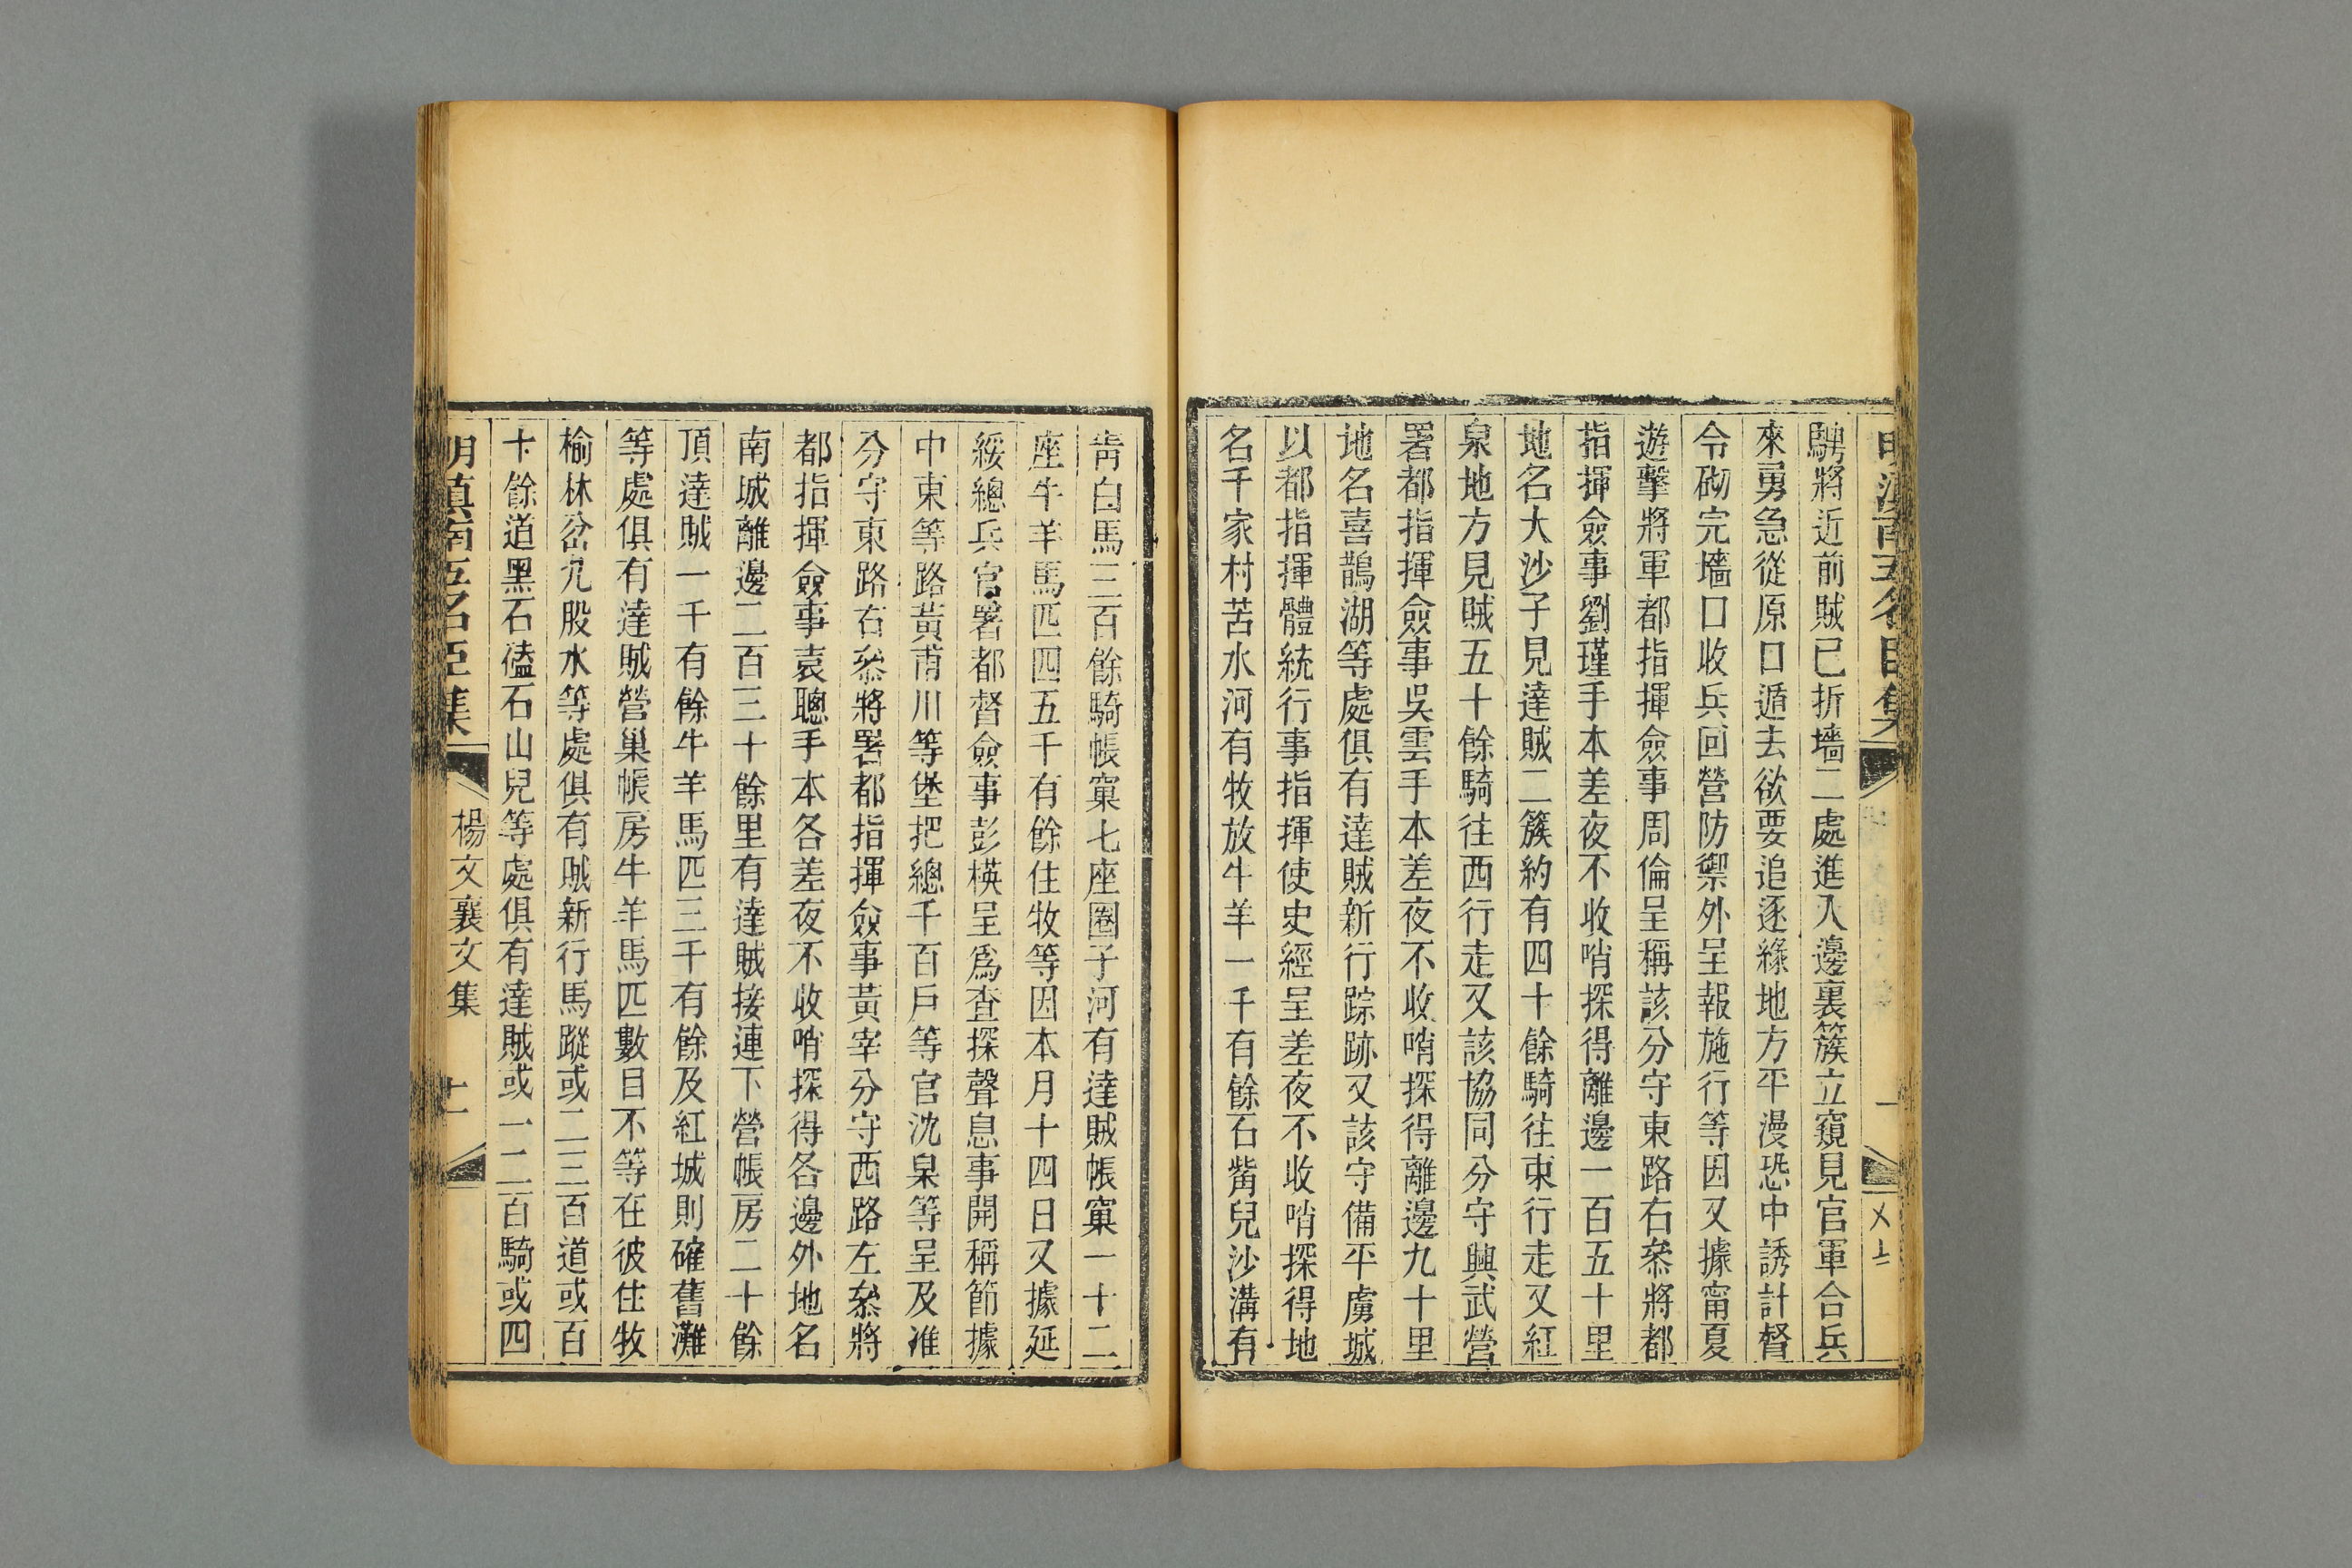 騁將近前賊已折墻二處進入邊裏簇立窺見官軍合兵
來勇急從原口遁去欲要追逐緣地方平漫恐中誘計督
令砌完墻口收兵回營防禦外呈報施行等因又據甯夏
遊擊將軍都指揮僉事周倫呈稱該分守東路右叅將都
指揮僉事劉瑾手本差夜不收哨探得離邊一百五十里
地名大沙子見達賊二簇約有四十餘騎往東行走又紅
泉地方見賊五十餘騎往西行走又該協同分守興武營
署都指揮僉事吳雲手本差夜不收哨探得離邊九十里
地名喜鵲湖等處俱有達賊新行踪跡又該守備平虜城
以都指揮體統行事指揮使史經呈差夜不收哨探得地
名千家村苦水河有牧放牛羊一千有餘石觜兒沙溝有
青白馬三百餘騎帳窠七座圈子河有達賊帳窠一十二
座牛羊馬匹四五千有餘住牧等因本月十四日又據延
綏總兵官署都督僉事彭楧呈爲查探聲息事開稱節據
中東等路黃甫川等堡把總千百戶等官沈杲等呈及准
分守東路右叅將署都指揮僉事黃宰分守西路左叅將
都指揮僉事袁聰手本各差夜不收哨探得各邊外地名
南城離邊二百三十餘里有達賊接連下營帳房二十餘
頂達賊一千有餘牛羊馬匹三千有餘及紅城則確舊灘
等處俱有達賊營巢帳房牛羊馬匹數目不等在彼住牧
榆林岔九股水等處俱有賊新行馬蹤或二三百道或百
十餘道黑石磕石山兒等處俱有達賊或一二百騎或四
明滇南五名臣集 楊文襄文集 十一